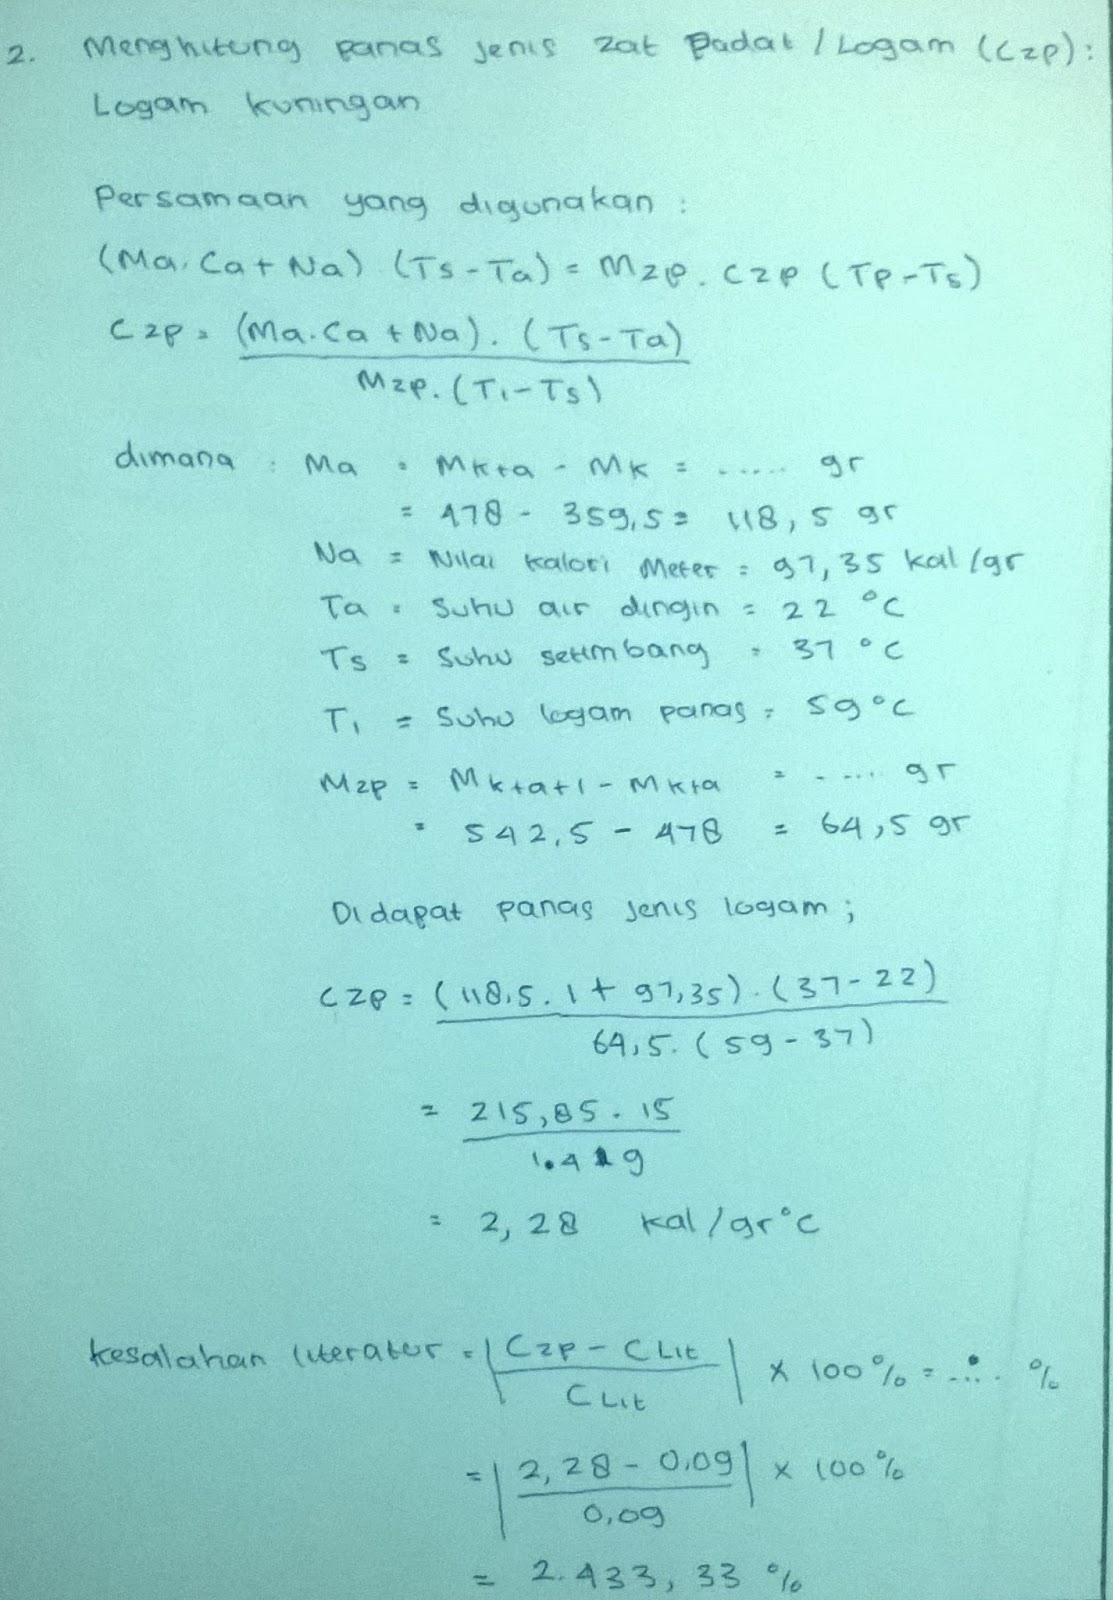 2. Menghitung panas jenis zat Padat / Logam (Czp) :
Logam kuningan
Persamaan yang digunakan :
(Ma. Ca + Na) (Ts - Ta) = Mzp. Czp (Tp - Ts)
Czp = (Ma. Ca + Na). (Ts - Ta)
Mzp. (T1 - Ts)
dimana : Ma = Mk+a - Mk = ...... gr
= 478 - 359,5 = 118,5 gr
Na = Nilai kalori Meter = 97,35 kal/gr
Ta = Suhu air dingin = 22 °C
Ts = Suhu setimbang = 37 °C
T1 = Suhu logam panas = 59°C
Mzp = Mk+a+l - Mk+a = ..... gr
= 542,5 - 478 = 64,5 gr
Didapat panas jenis logam ;
Czp = (118,5. 1 + 97,35). (37-22)
64,5. (59 - 37)
= 215,85. 15
1.419
= 2,28 kal/gr°C
kesalahan literatur = | Czp - CLit | x 100% = ..... %
CLit
= | 2,28 - 0,09 | x 100%
0,09
= 2.433,33 %